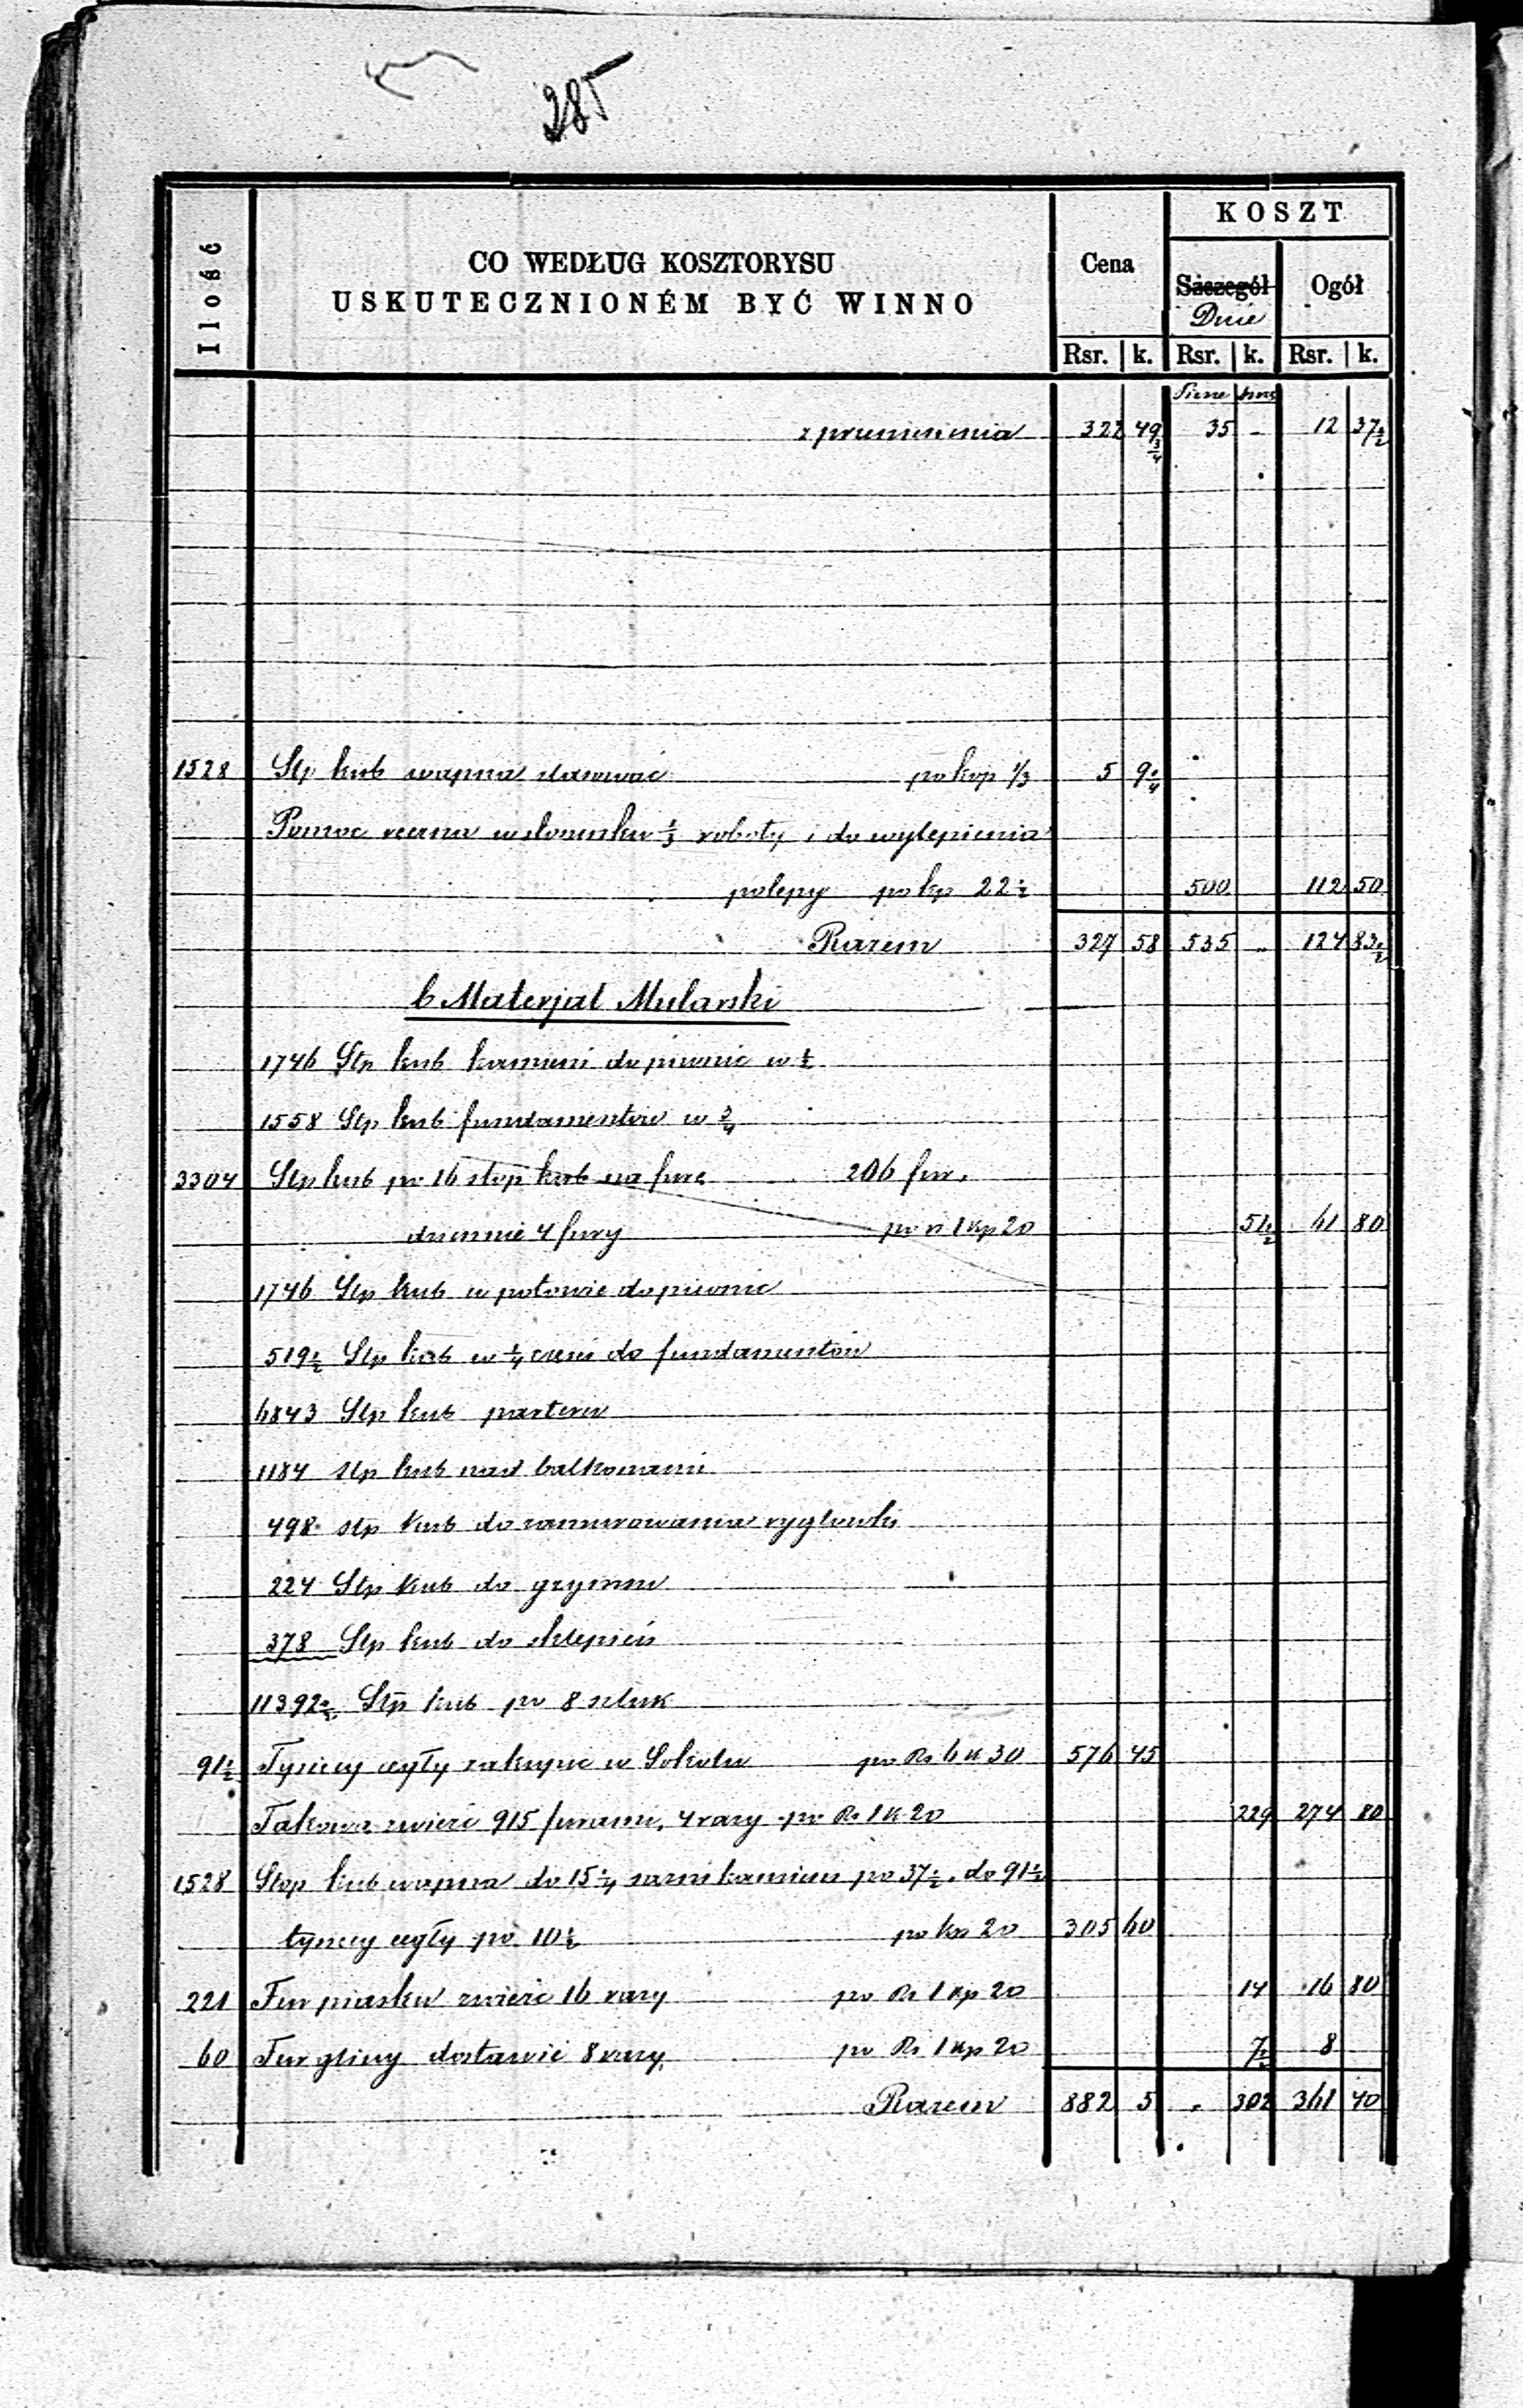 285
Ilość
CO WEDŁUG KOSZTORYSU
USKUTECZNIONÉM BYĆ WINNO
Cena
KOSZT
Szczegół
Dnie
Ogół
Rsr. k. Rsr. k. Rsr. k.
z przeniesienia 322 49 3/4 35 - 12 37 1/2
1528 Stp kub wapna lasować po kop 1/3 5 9 1/4
Pomoc ręczna w stosunku 1/3 roboty i do wylepienia
polepy po kp 22 1/2 500 112 50
Razem 327 58 535 „ 124 83 1/2
b Materjał Mularski
1746 Stp kub kamieni do piwnic w 1/2
1558 Stp kub fundamentów w 3/4
3304 Stp kub po 16 stop kub na furę 206 fur.
dziennie 4 fury po rs 1 kp 20 51 1/2 61 80
1746 Stp kub w połowie do piwnic
519 1/2 Stp kub w 1/4 części do fundamentów
6843 Stp kub parteru
1184 stp kub nad balkonami
498 stp kub do zamurowania ryglówki
224 Stp kub do gzymsu
378 Stp kub do sklepień
11392 1/2 Stp kub po 8 sztuk
91 1/2 Tysięcy cegły zakupić w Sokołu po Rs 6 k 30 576 45
Takową zwieźć 915 furami, 4 razy po Rs 1 k 20 229 274 80
1528 Stop kub wapna do 15 1/4 sążni kamieni po 37 1/2, do 91 1/2
tysięcy cegły po 10 1/2 po kop 20 305 60
221 Fur piasku zwieźć 16 razy po Rs 1 kp 20 14 16 80
60 Fur gliny dostawić 8 razy po Rs 1 kp 20 7 1/2 8
Razem 882 5 „ 302 361 40